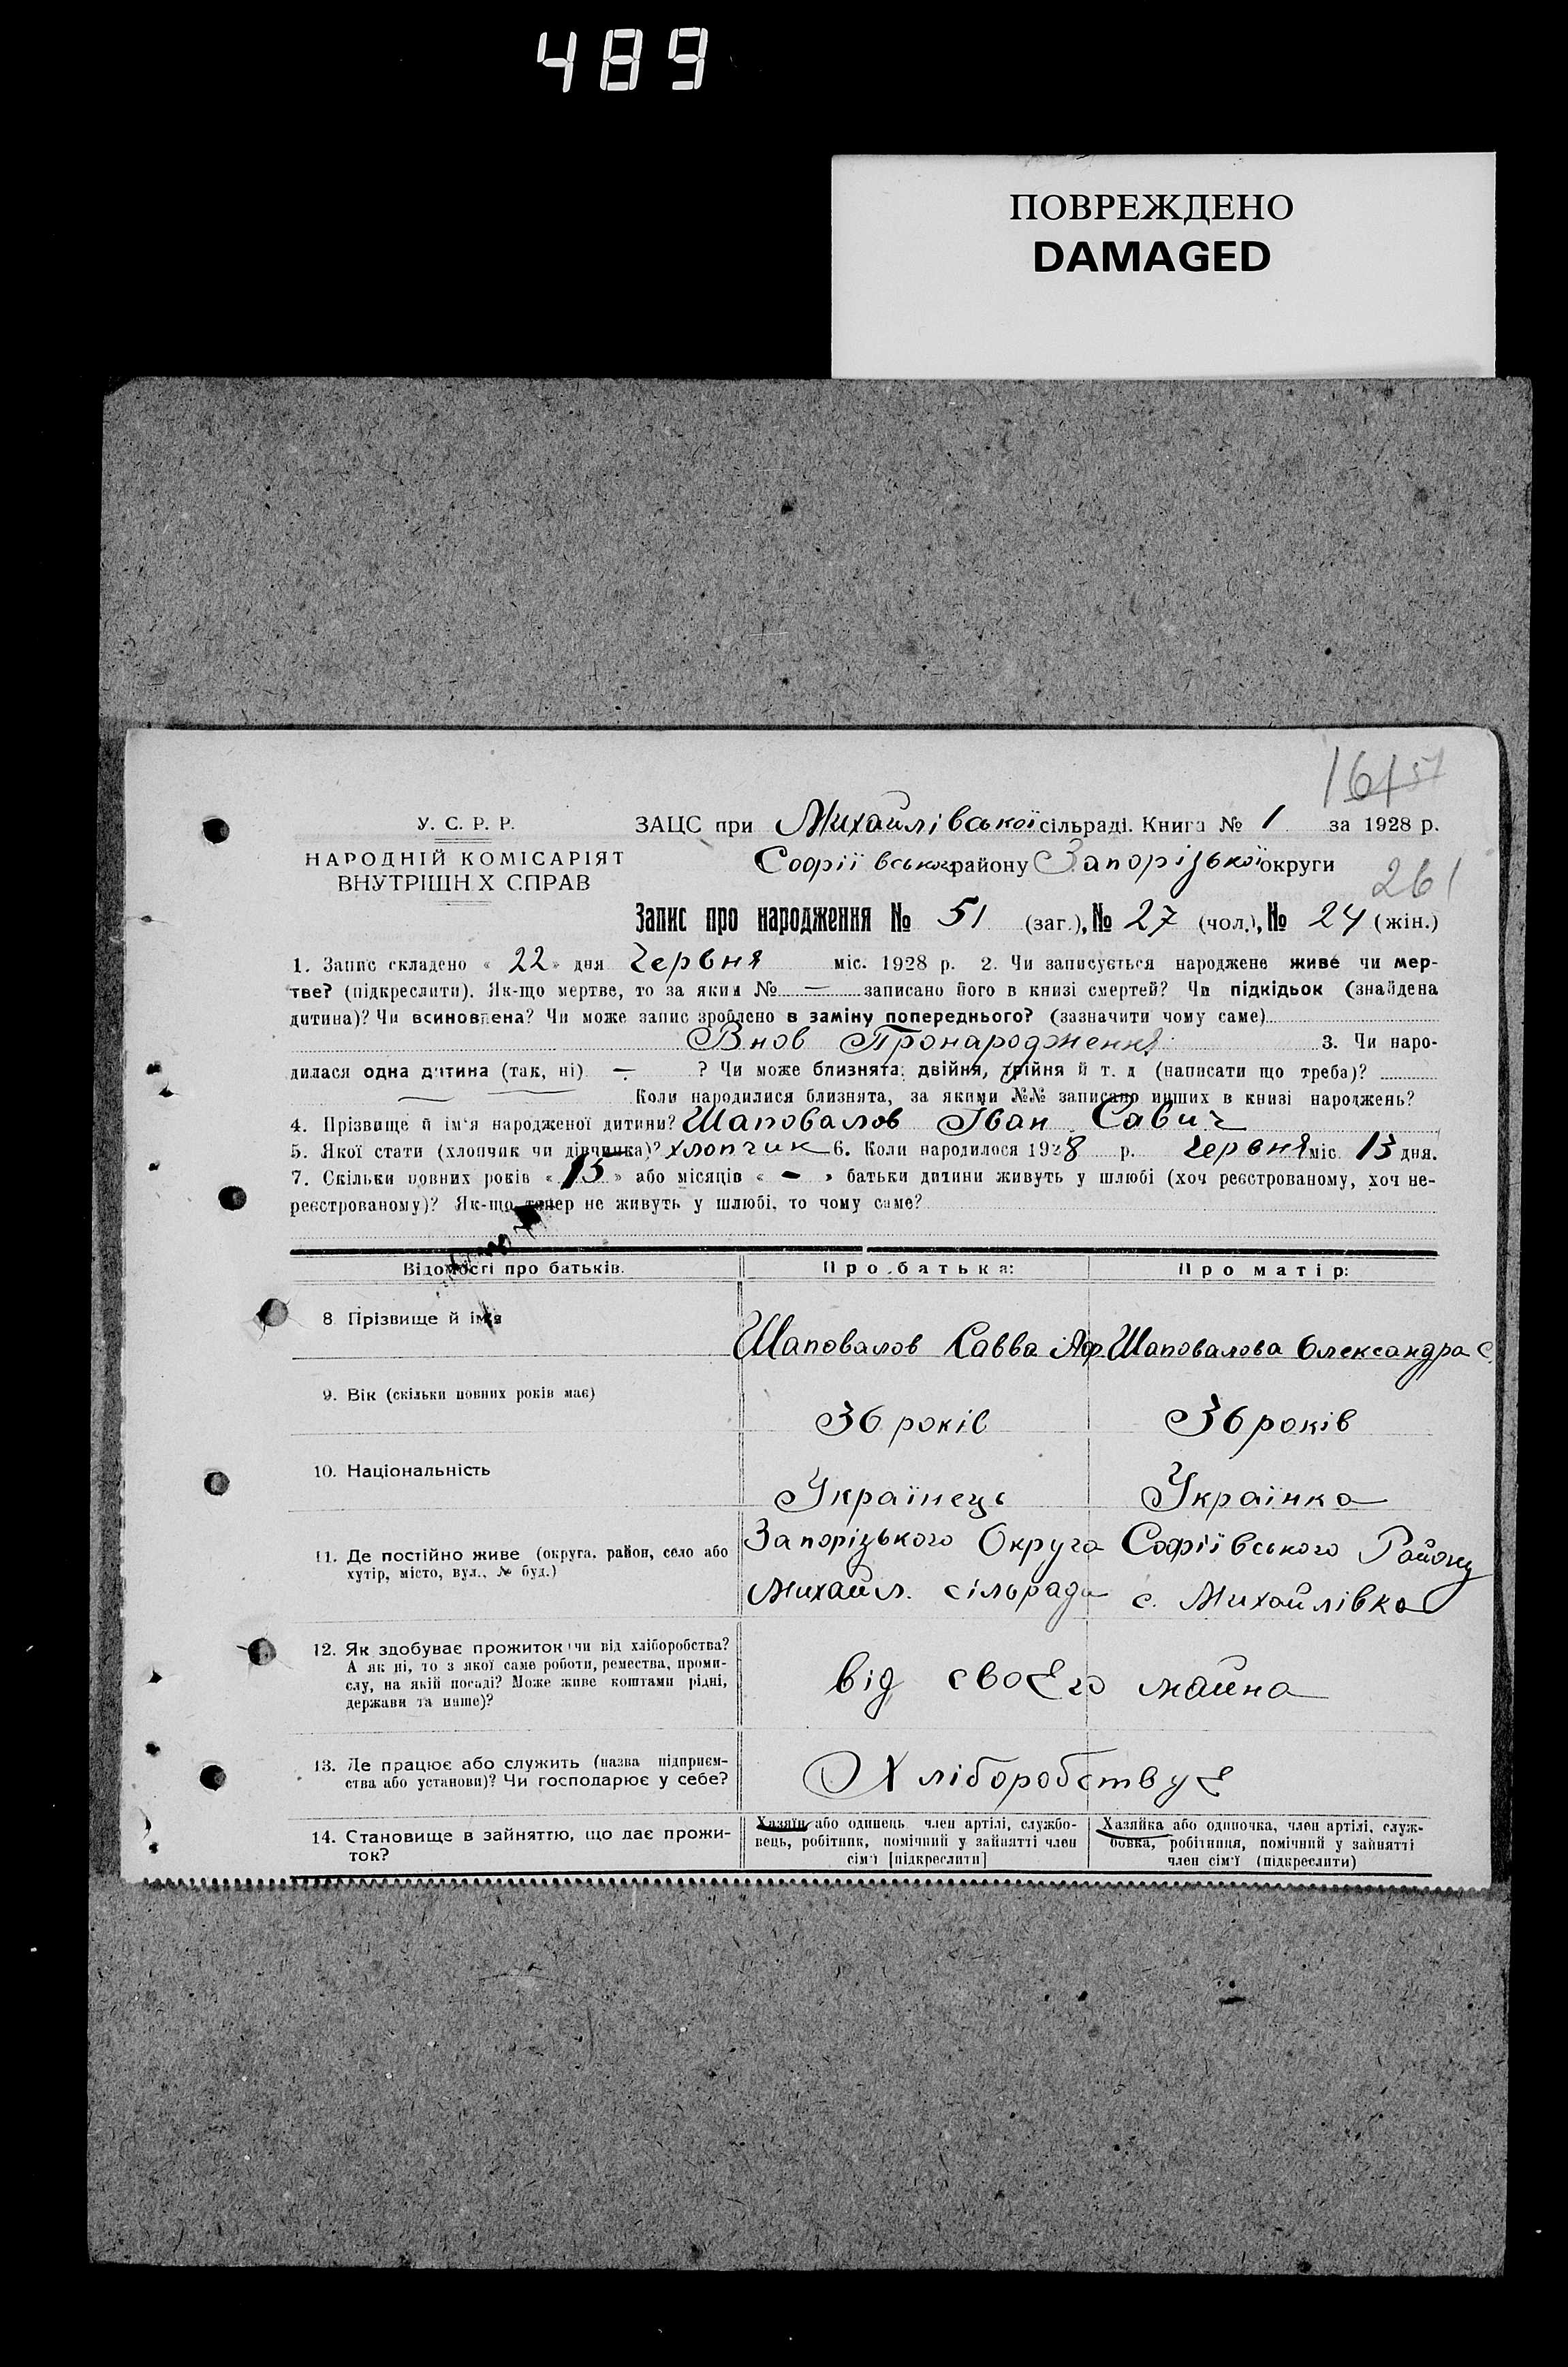 489
ПОВРЕЖДЕНО
DAMAGED
161 51
У. С. Р. Р.
НАРОДНІЙ КОМІСАРІЯТ
ВНУТРІШНІХ СПРАВ
ЗАЦС при Михайлівської сільраді. Книга № 1 за 1928 р.
Софіївського району Запорізької округи
261
Запис про народження № 51 (заг.), № 27 (чол.), № 24 (жін.)
1. Запис складено « 22 » дня Червня міс. 1928 р. 2. Чи записується народжене живе чи мер-
тве? (підкреслити). Як-що мертве, то за яким № — записано його в книзі смертей? Чи підкідьок (знайдена
дитина)? Чи всиновлена? Чи може запис зроблено в заміну попереднього? (зазначити чому саме)
Внов Пронародження 3. Чи наро-
дилася одна дитина (так, ні) — ? Чи може близнята: двійня, трійня й т. д (написати що треба)?
Коли народилися близнята, за якими №№ записано инших в книзі народжень?
4. Прізвище й ім'я народженої дитини? Шаповалов Іван Савич
5. Якої стати (хлопчик чи дівчинка)? хлопчик 6. Коли народилося 1928 р. Червня міс. 13 дня.
7. Скільки повних років « 15 » або місяців « - » батьки дитини живуть у шлюбі (хоч реєстрованому, хоч не-
реєстрованому)? Як-що тепер не живуть у шлюбі, то чому саме?
Відомості про батьків.
Про батька:
Про матір:
8. Прізвище й ім'я
Шаповалов Савва Аф.
Шаповалова Олександра С.
9. Вік (скільки повних років має)
36 років
36 років
10. Національність
Українець
Українка
11. Де постійно живе (округа, район, село або
хутір, місто, вул., № буд.)
Запоріцького Округа Софіївського Району
Михайл. сільради с. Михайлівка
12. Як здобуває прожиток: чи від хліборобства?
А як ні, то з якої саме роботи, ремества, проми-
слу, на якій посаді? Може живе коштами рідні,
держави та инше)?
від своєго майна
13. Де працює або служить (назва підприєм-
ства або установи)? Чи господарює у себе?
Хліборобствує
14. Становище в зайняттю, що дає прожи-
ток?
Хазяїн або одинець член артілі, службо-
вець, робітник, помічний у зайнятті член
сім'ї [підкреслити]
Хазяйка або одиночка, член артілі, служ-
бовка, робітниця, помічний у зайнятті
член сім'ї (підкреслити)